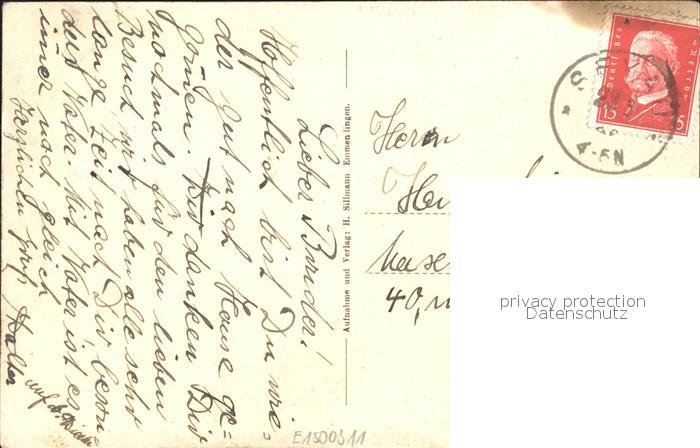 Lieber Bruder!
Hoffentlich bist Du wie-
der gut nach Hause ge-
Wir danken Dir
nochmals für den lieben
Besuch, wir haben alle sehr
lange Zeit nach Dir, beson-
ders Vater. Mit Vater ist es
immer noch gleich
Herzlichen Gruß
Aufnahme und Verlag: H. Sillmann Emmen lingen.
Herrn
40,
Deutsches Reich
15
15
4-5N
privacy protection
Datenschutz
E1500311